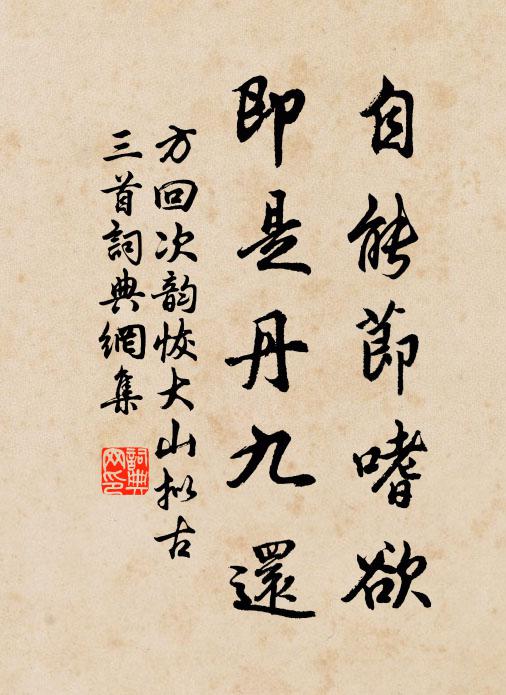 自能節嗜欲
即是丹九還
方回次韵恢大山拟古
三首詞典網集
詞典網印